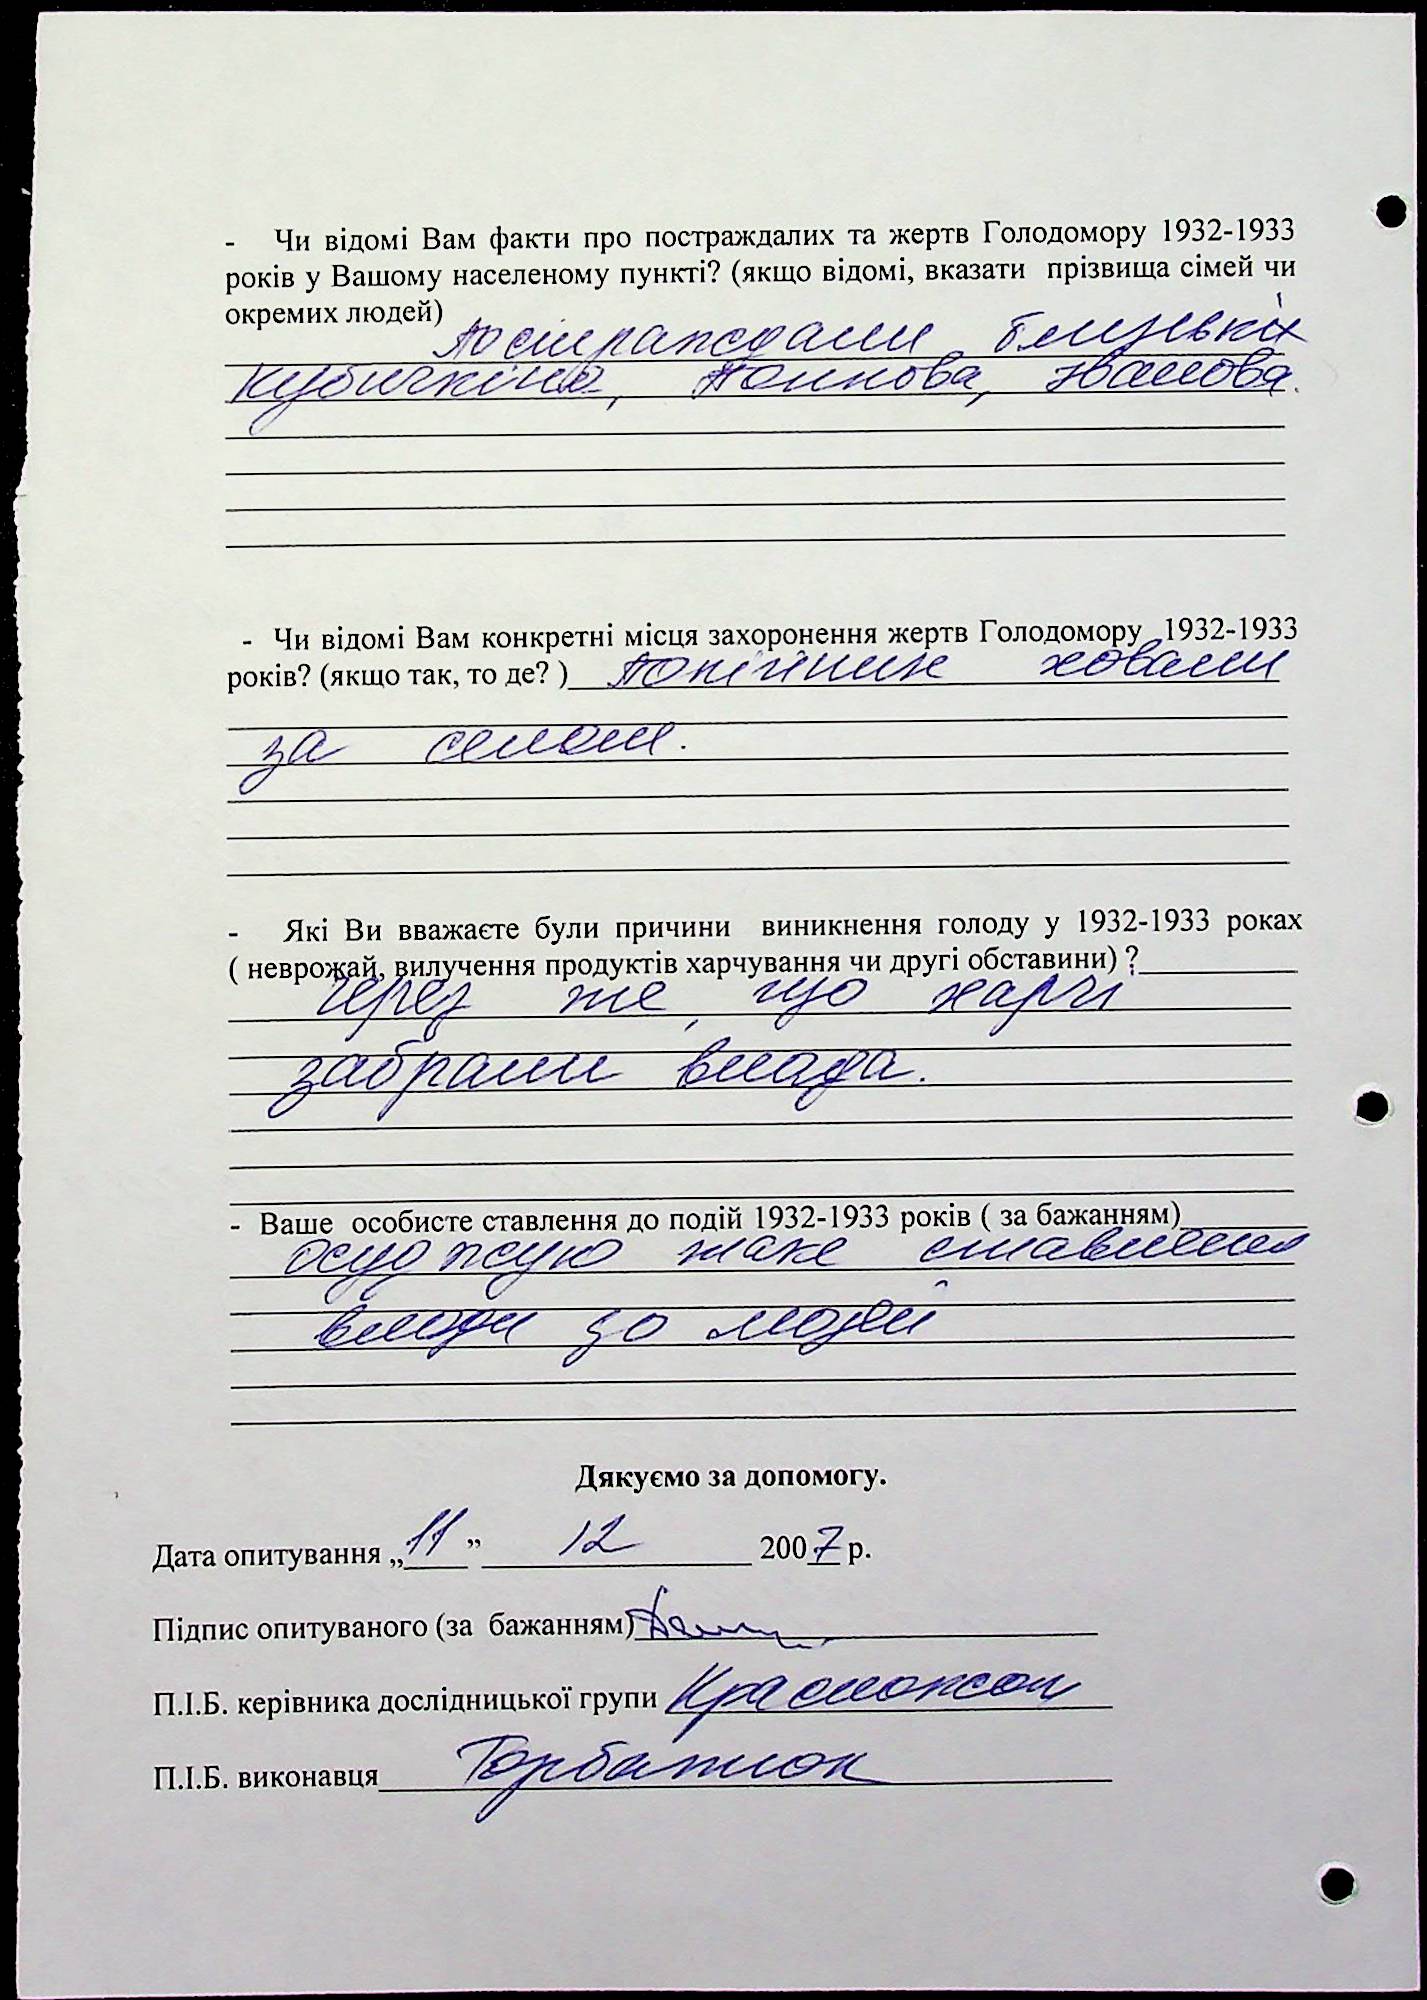 - Чи відомі Вам факти про постраждалих та жертв Голодомору 1932-1933
років у Вашому населеному пункті? (якщо відомі, вказати прізвища сімей чи
окремих людей)
Постраждали близькі
Кубичкіна, Попкова, Іванова.
- Чи відомі Вам конкретні місця захоронення жертв Голодомору 1932-1933
років? (якщо так, то де? ) Покійних ховали
за селом.
- Які Ви вважаєте були причини виникнення голоду у 1932-1933 роках
( неврожай, вилучення продуктів харчування чи другі обставини) ?
Через те, що харчі
забрали влада.
- Ваше особисте ставлення до подій 1932-1933 років ( за бажанням)
осуджую таке ставлення
влади до людей
Дякуємо за допомогу.
Дата опитування „11” 12 2007 р.
Підпис опитуваного (за бажанням)
П.І.Б. керівника дослідницької групи
П.І.Б. виконавця Горбатюк